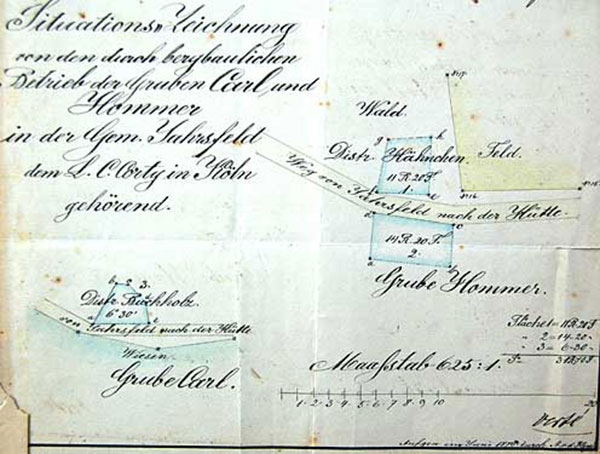 Situations-Zeichnung
von den durch bergbaulichen
Betrieb der Gruben Carl und
Hommer
in der Gem. Jahrsfeld
dem L. C. Corty in Köln
gehörend.
Wald.
g
h
Distr. Hähnchen.
Feld.
11 R. 20 F.
1.
No 17
No 16
No 15
Weg von Jahrsfeld nach der Hütte.
d
c
14 R. 20 F.
2.
a
Grube Hommer.
b 2 3.
Distr. Buchholz.
6° 30'
a
von Jahrsfeld nach der Hütte
Wiesen
Grube Carl.
Fläche 1 = 11 R. 20 F
" 2 = 14-20-
" 3 = 6-30-
Maaßstab 625:1.
1 2 3 4 5 6 7 8 9 10
20
Aufgen. im Juni
durch